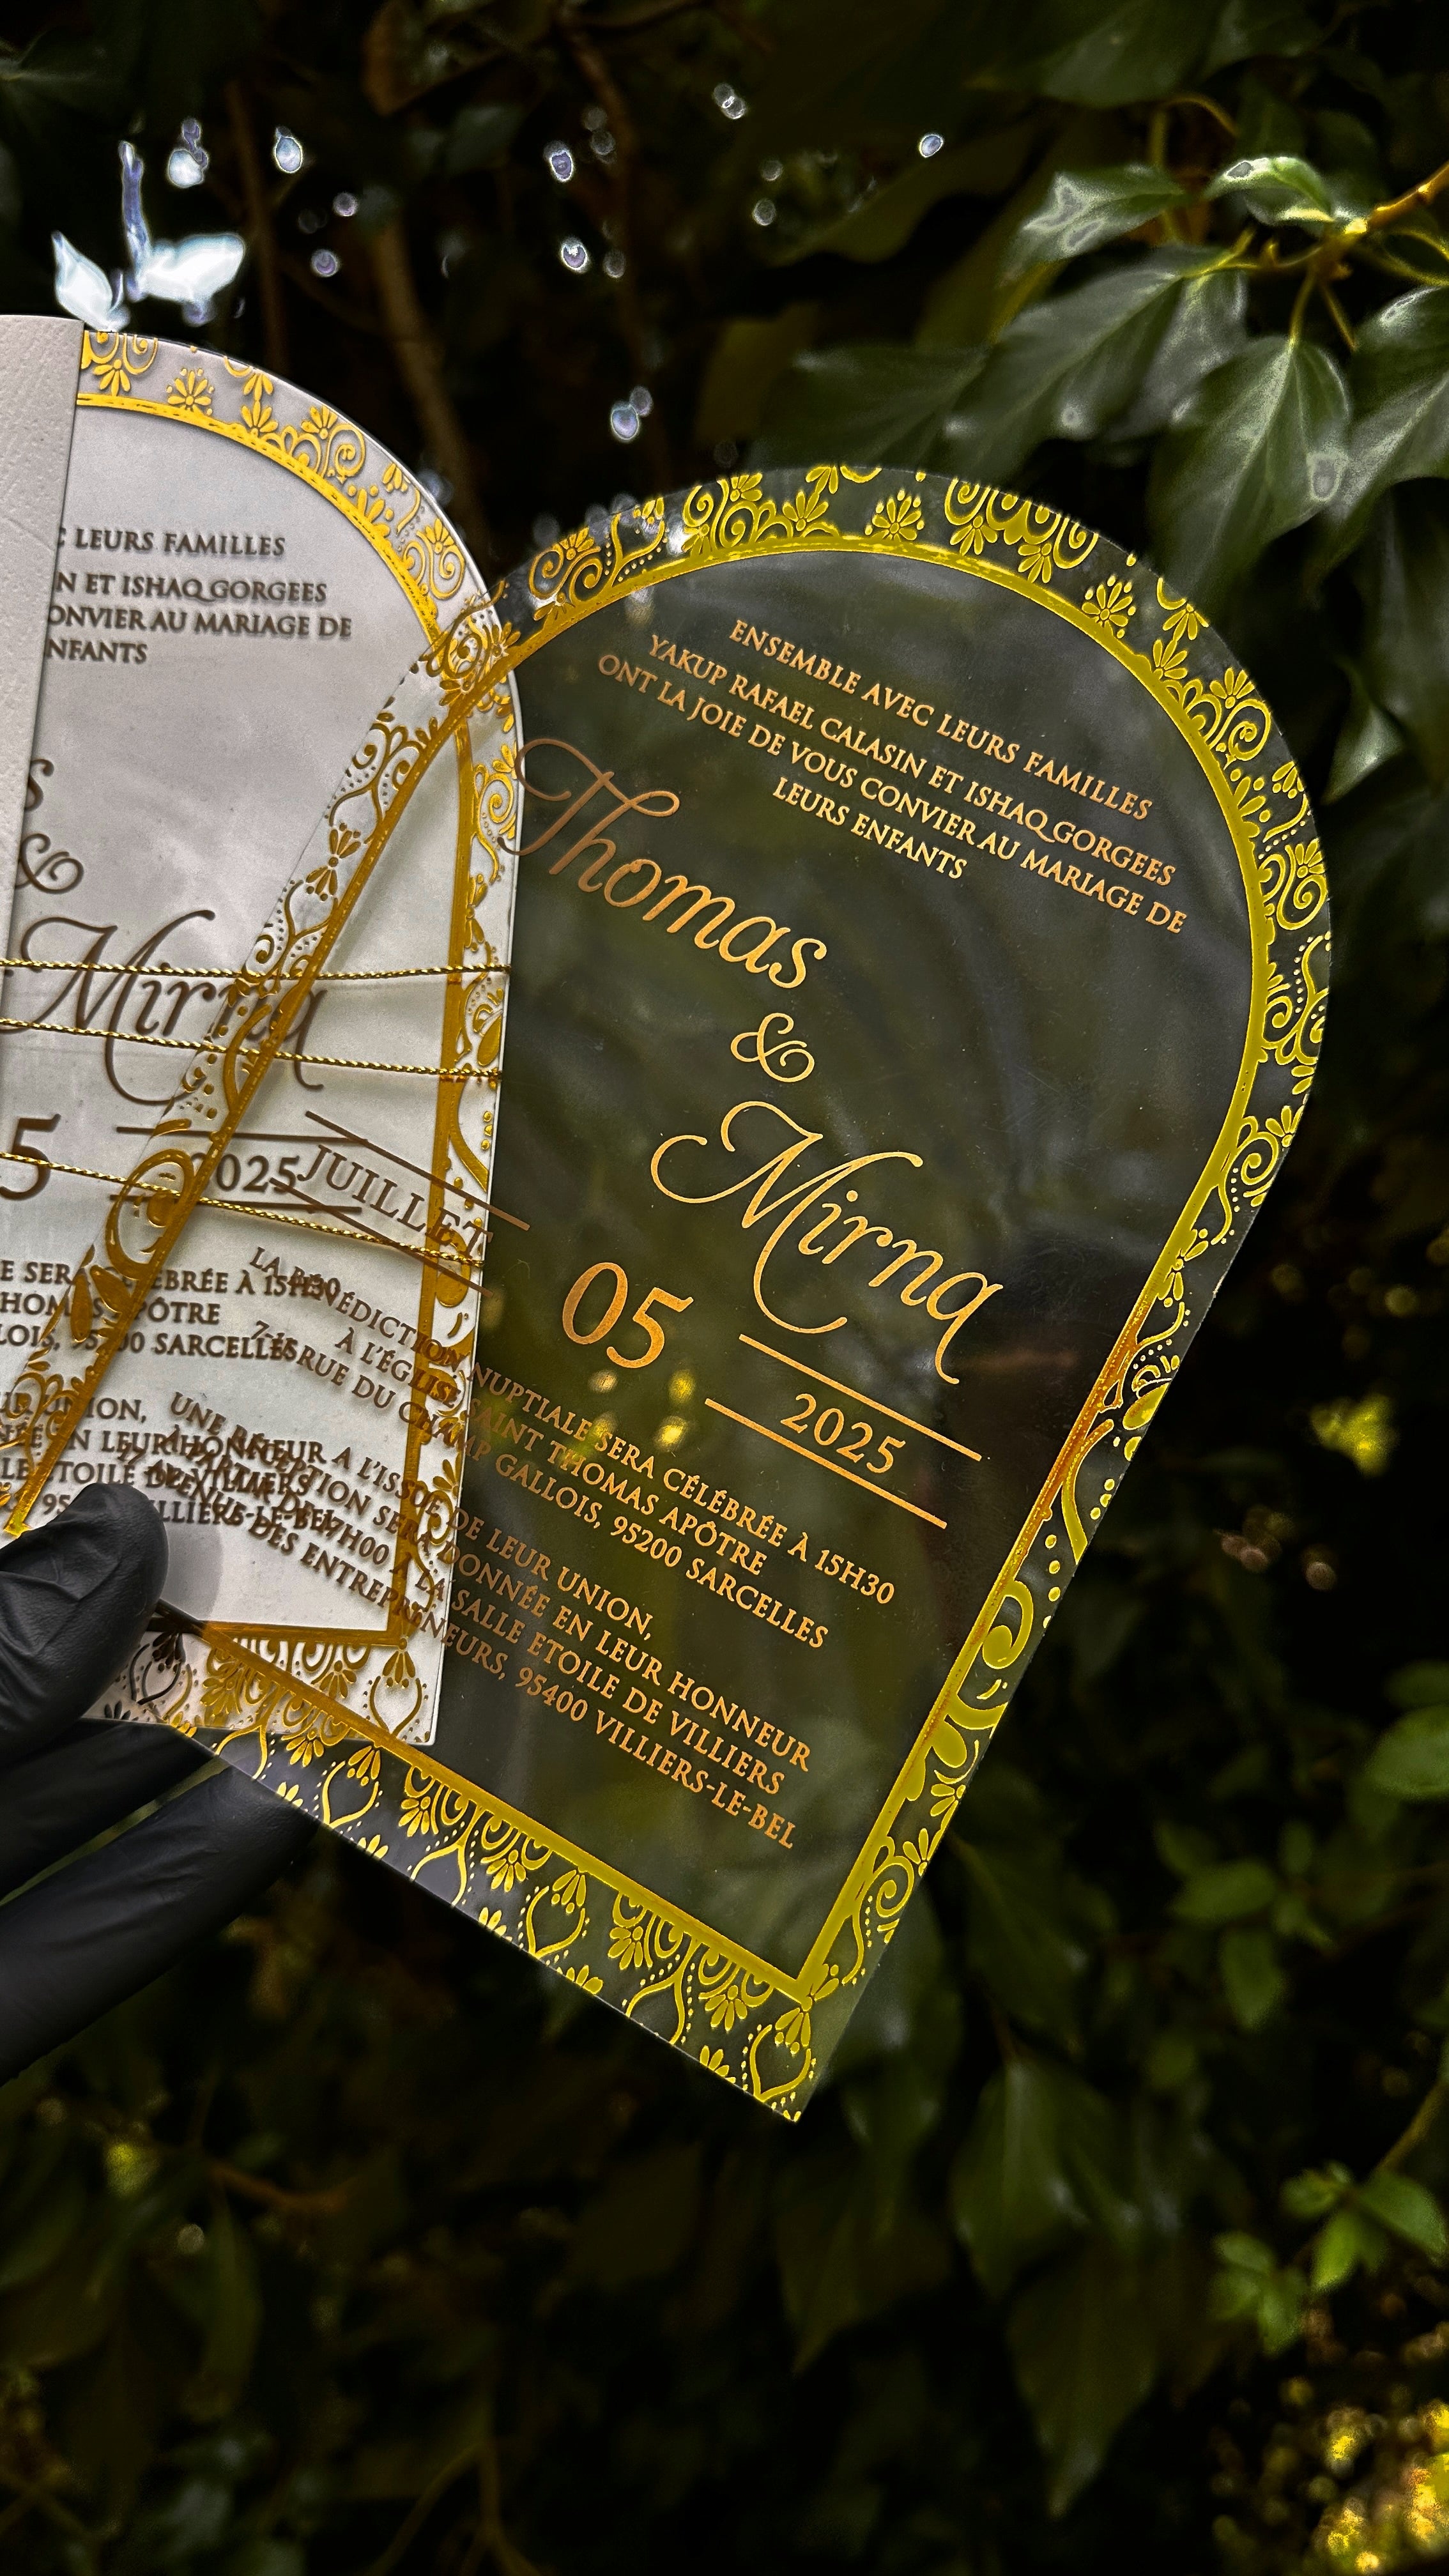 C LEURS FAMILLES
N ET ISHAQ GORGEES
ONVIER AU MARIAGE DE
NFANTS
S
&
Mirna
5
2025
E SERA CÉLÉBRÉE À 15H30
THOMAS APÔTRE
LOIS, 95200 SARCELLES
UNION,
EN LEUR HONNEUR
ENSEMBLE AVEC LEURS FAMILLES
YAKUP RAFAEL CALASIN ET ISHAQ GORGEES
ONT LA JOIE DE VOUS CONVIER AU MARIAGE DE
LEURS ENFANTS
Thomas
&
Mirna
JUILLET 05 2025
LA BÉNÉDICTION NUPTIALE SERA CÉLÉBRÉE À 15H30
À L'ÉGLISE SAINT THOMAS APÔTRE
RUE DU CHAMP GALLOIS, 95200 SARCELLES
A L'ISSUE DE LEUR UNION,
UNE RÉCEPTION SERA DONNÉE EN LEUR HONNEUR
17H00 À LA SALLE ETOILE DE VILLIERS
AVENUE DES ENTREPRENEURS, 95400 VILLIERS-LE-BEL